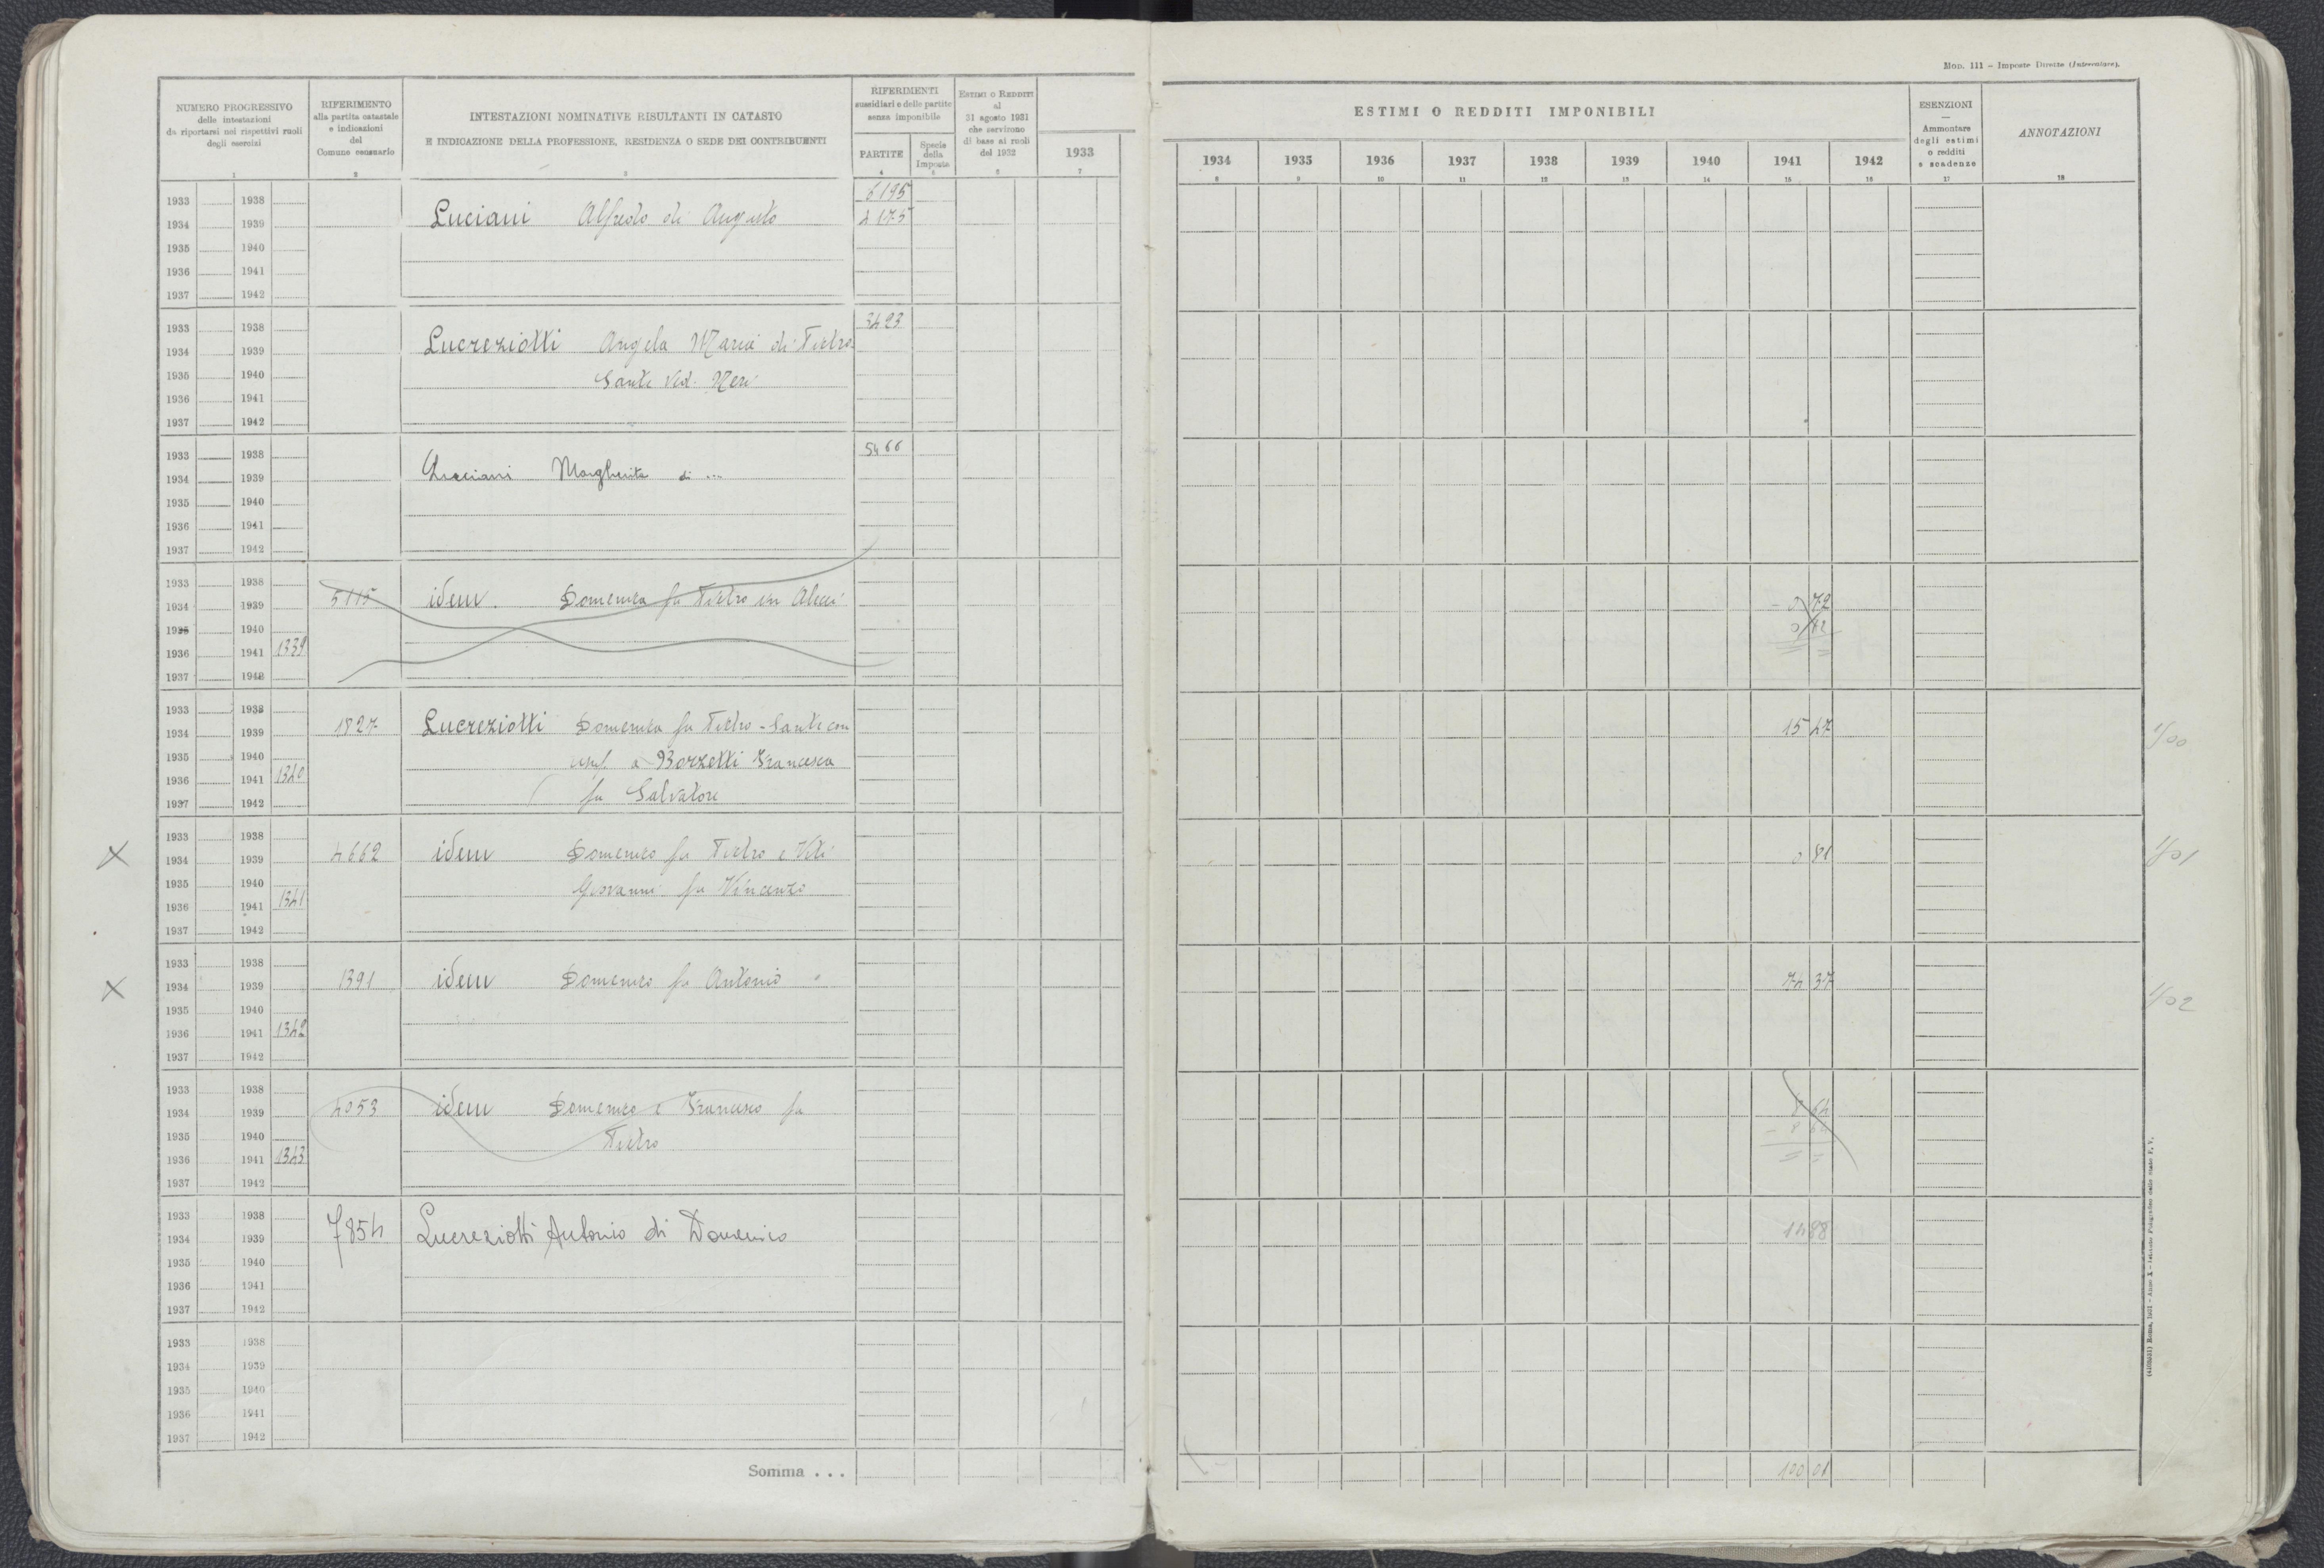 Mon. 111 – Imposte Dirette (Intercalare).
NUMERO PROGRESSIVO
delle intestazioni
da riportarsi nei rispettivi ruoli
degli esercizi
RIFERIMENTO
alla partita catastale
e indicazioni
del
Comune censuario
INTESTAZIONI NOMINATIVE RISULTANTI IN CATASTO
E INDICAZIONE DELLA PROFESSIONE, RESIDENZA O SEDE DEI CONTRIBUENTI
RIFERIMENTI
sussidiari e delle partite
senza imponibile
PARTITE
Specie
della
Imposta
ESTIMI O REDDITI
al
31 agosto 1931
che servirono
di base ai ruoli
del 1932
ESTIMI O REDDITI IMPONIBILI
1933 1934 1935 1936 1937 1938 1939 1940 1941 1942
ESENZIONI
—
Ammontare
degli estimi
o redditi
e scadenze
ANNOTAZIONI
1 2 3 4 5 6 7 8 9 10 11 12 13 14 15 16 17 18
1933 1938 6195
1934 1939 Luciani Alfredo di Augusto 4175
1935 1940
1936 1941
1937 1942
1933 1938 3423
1934 1939 Lucreziotti Angela Maria di Pietro
1935 1940 Sante Ved. Neri
1936 1941
1937 1942
1933 1938 5466
1934 1939 Luciani Margherita di ...
1935 1940
1936 1941
1937 1942
1933 1938
1934 1939 5115 idem. Domenica fu Pietro in 0 72
1935 1940 0 72
1936 1941 1339
1937 1942
1933 1938
1934 1939 1827 Lucreziotti Domenica fu Pietro-Sante con 15 47
1935 1940 usuf. a Borzetti Francesca
1936 1941 1340
1937 1942 fu Salvatore
1933 1938
1934 1939 4662 idem Domenico fu Pietro e Viti 0 81
1935 1940 Giovanni fu Vincenzo
1936 1941 1341
1937 1942
1933 1938
1934 1939 1391 idem Domenico fu Antonio 74 37
1935 1940
1936 1941 1342
1937 1942
1933 1938
1934 1939 4053 idem Domenico e Francesco fu 8 64
1935 1940 Pietro - 8 64
1936 1941 1343
1937 1942
1933 1938
1934 1939 7854 Lucreziotti Antonio di Domenico 14 88
1935 1940
1936 1941
1937 1942
1933 1938
1934 1939
1935 1940
1936 1941
1937 1942
Somma . . . 100 01